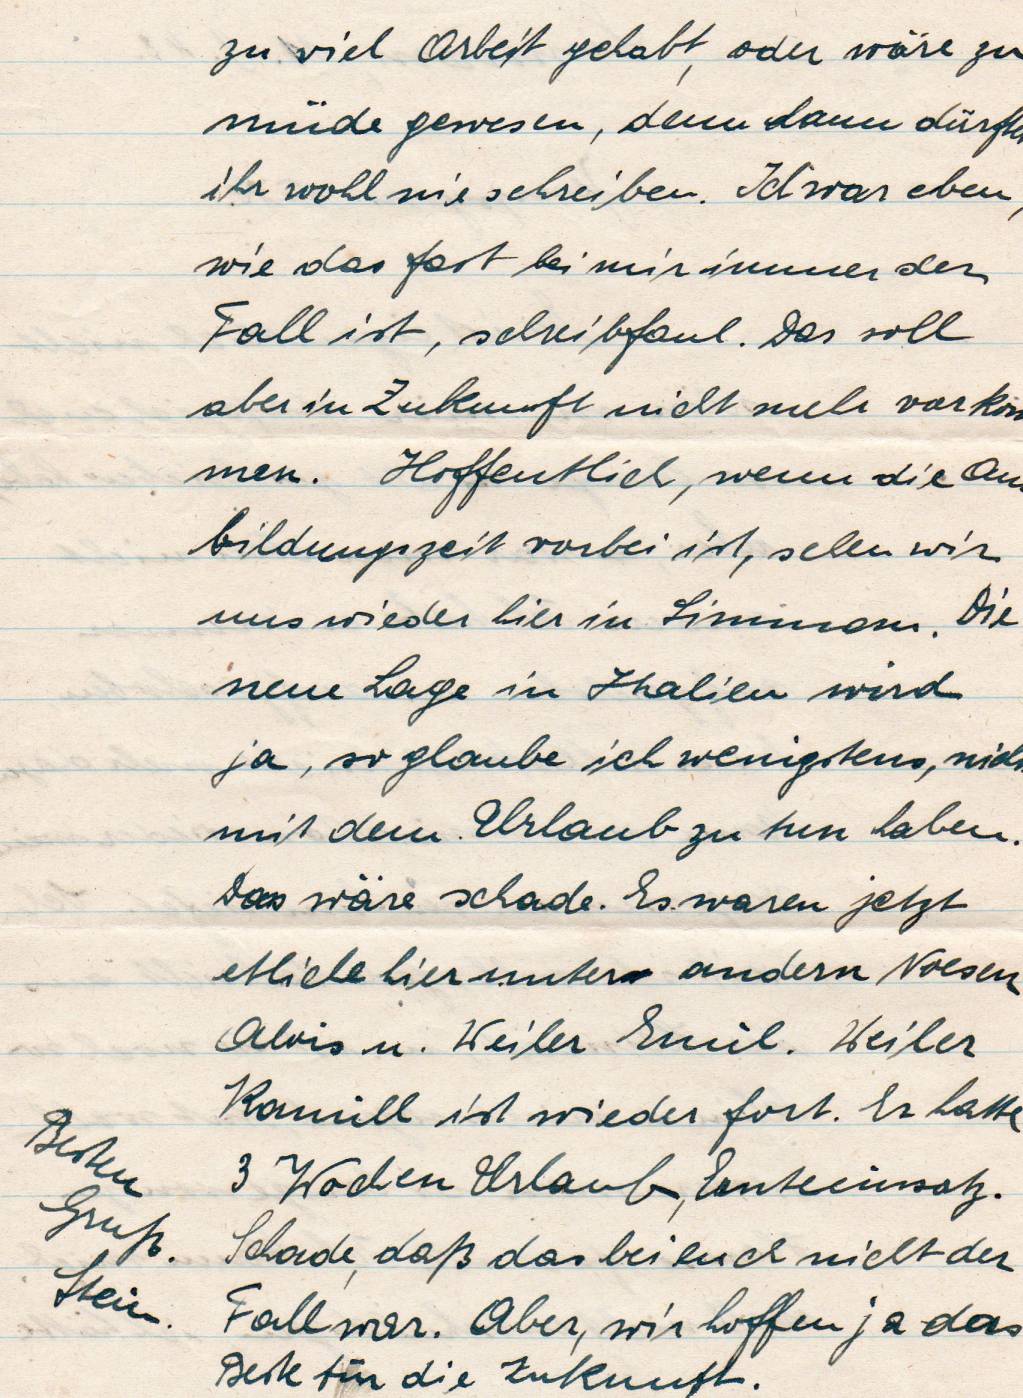 zu viel Arbeit gehabt, oder wäre zu
müde gewesen, denn dann dürften
ihr wohl nie schreiben. Ich war eben,
wie das fast bei mir immer der
Fall ist, schreibfaul. Das soll
aber in Zukunft nicht mehr vorkom
men. Hoffentlich, wenn die Aus
bildungszeit vorbei ist, sehen wir
uns wieder hier in Limmern. Die
neue Lage in Ithalien wird
ja, so glaube ich wenigstens, nichts
mit dem Urlaub zu tun haben.
Das wäre schade. Es waren jetzt
etliche hier unter andern
Alois u. Weiler Emil. Weiler
Kamill ist wieder fort. Er hatte
3 Wochen Urlaub, Ernteeinsatz.
Schade, daß das bei euch nicht der
Fall war. Aber, wir hoffen ja das
Beste für die Zukunft.
Besten
Gruß.
Stein.